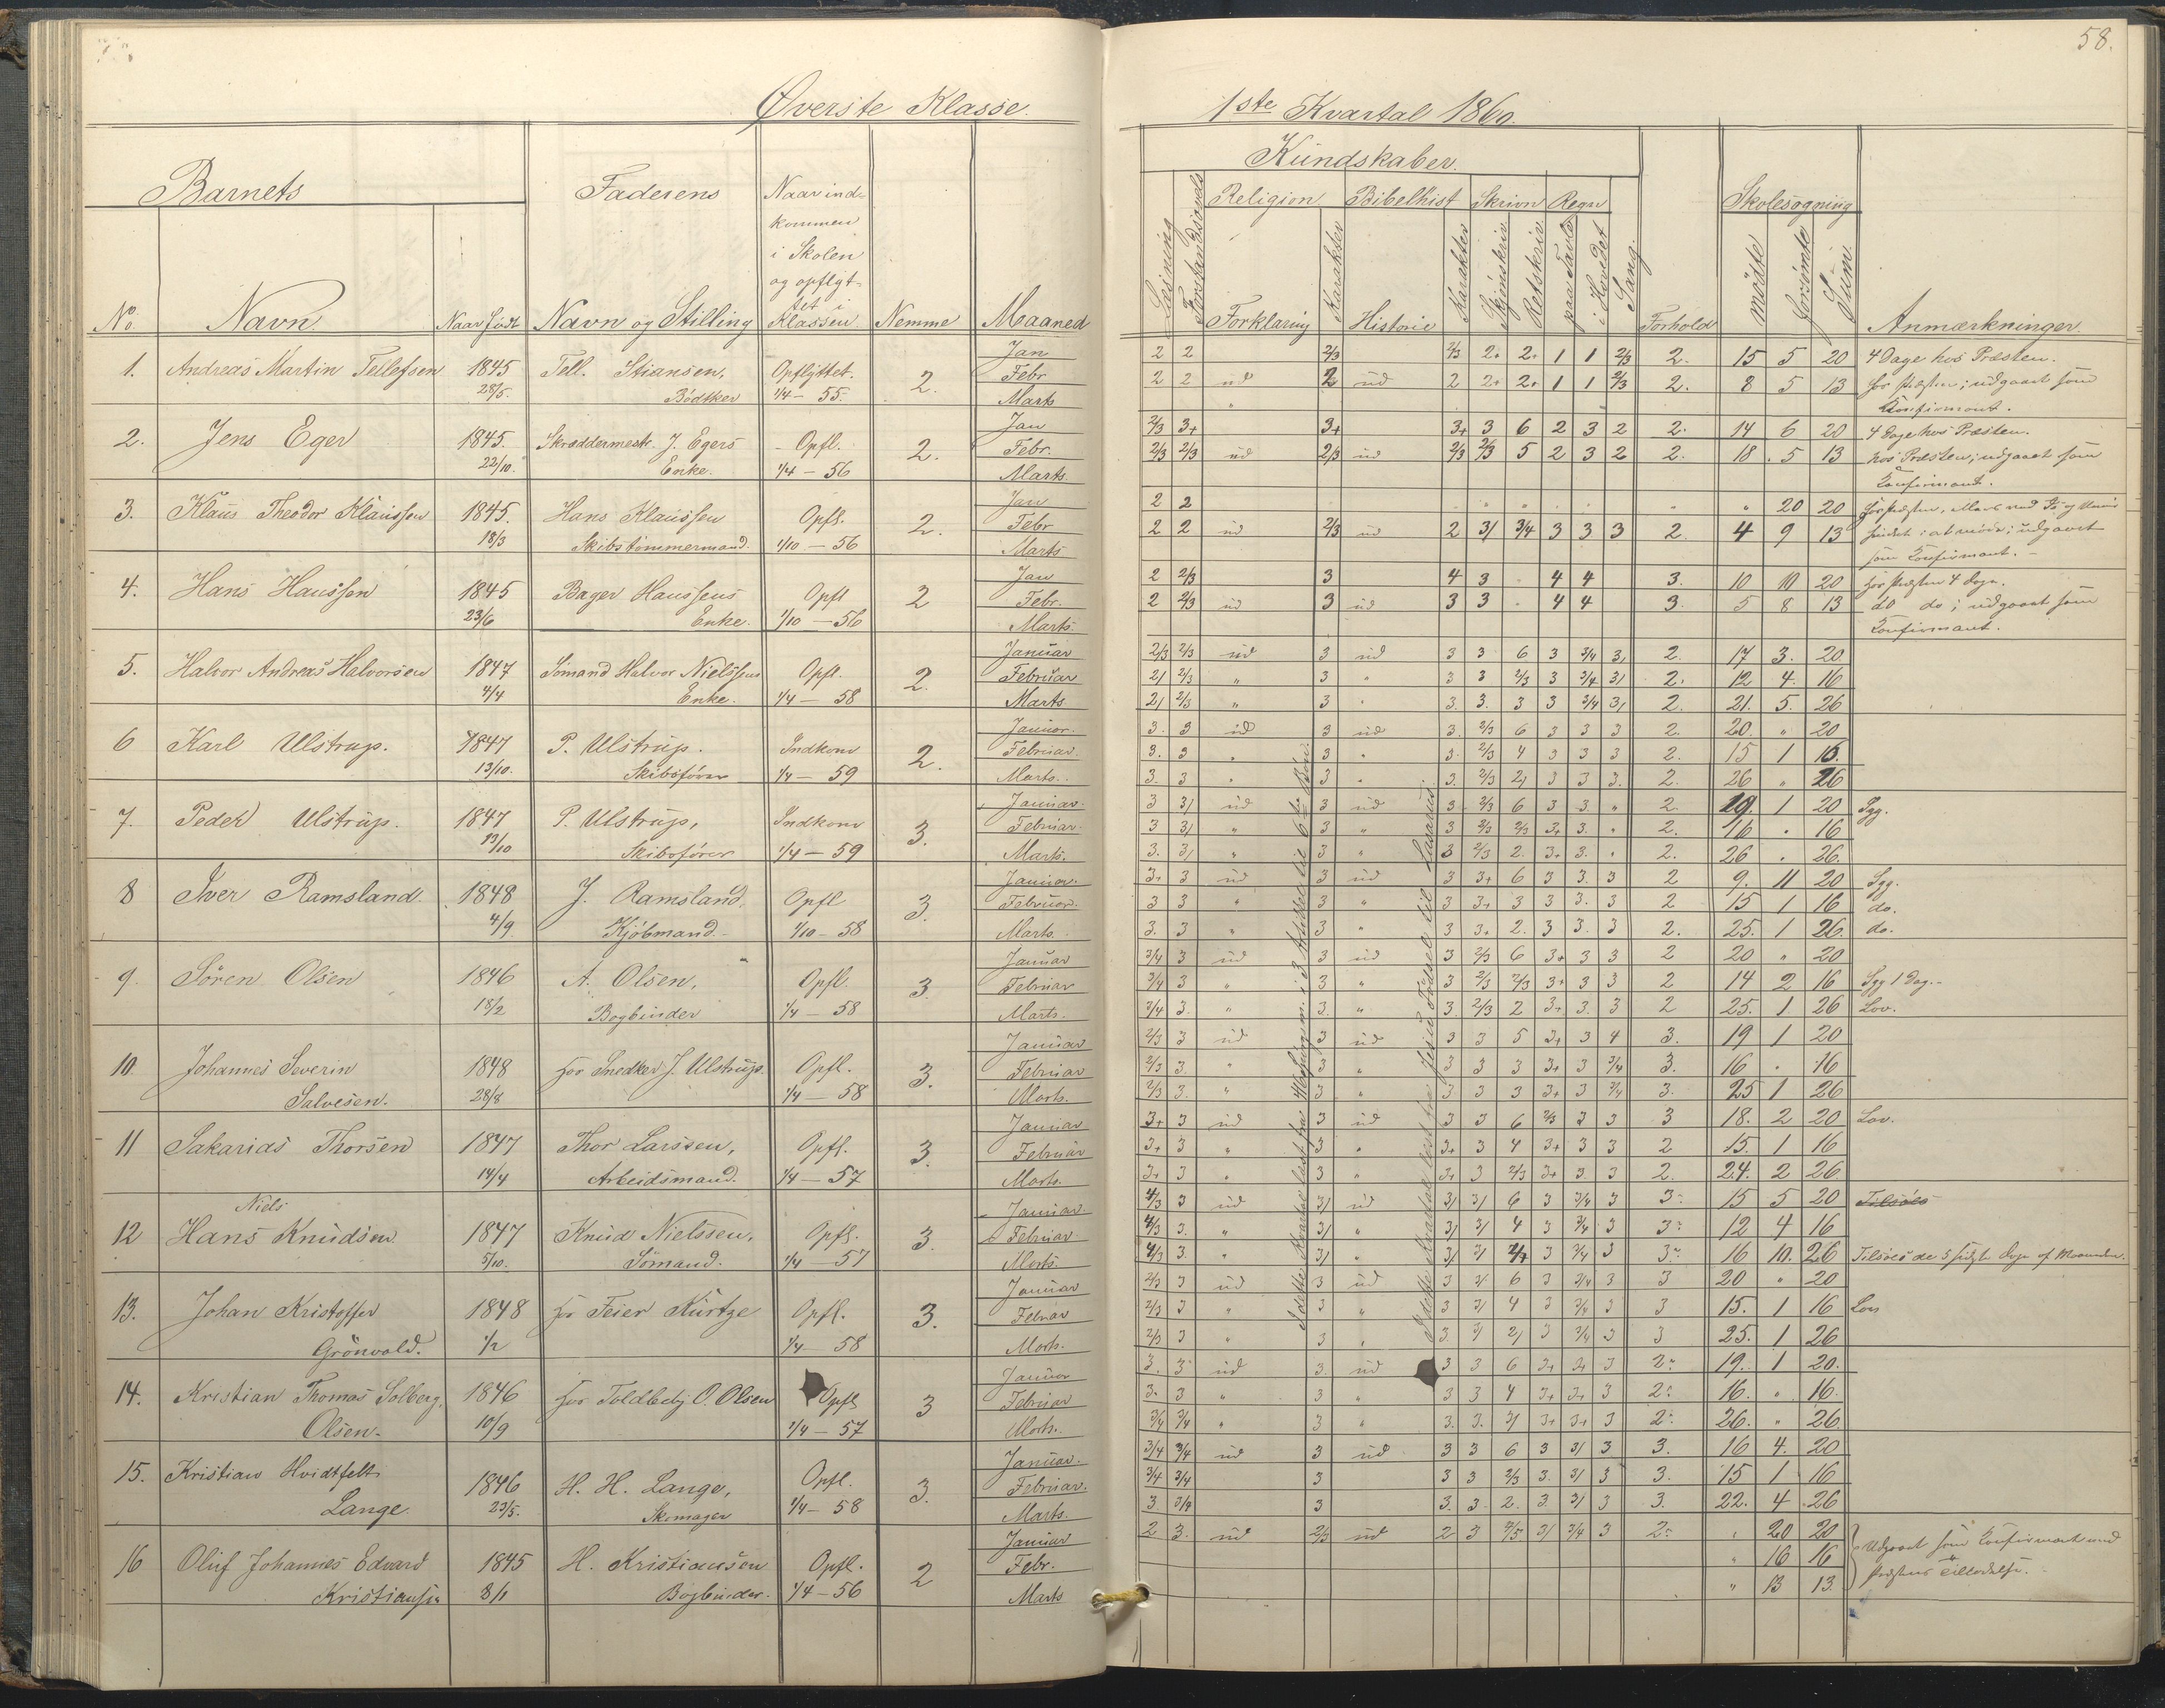 58.
Øverste Klasse.
1ste Kvartal 1860.
Barnets
Faderens
Naar ind-
kommen
i Skolen
og opflyt-
tet i
Klassen.
No.
Navn.
Naar født
Navn og Stilling
Nemme
Maaned
Kundskaber.
Læsning
Forstandsøvels
Religion
Forklaring
Karakter
Bibelhist
Historie
Karakter
Skrivn
Skjönskriv
Retskriv
Regn
paa Tavle
i Hovedet
Sang.
Forhold
Skolesøgning
mödte
forsömte
Sum.
Anmærkninger.
1. Andreas Martin Tellefsen 1845 Tell. Stiansen, Opflyttet. 2. Jan
28/5. Bödtker 1/4 – 55. Febr
Marts
2. Jens Eger 1845. Skræddermestr. J. Egers Opfl. 2. Jan
22/10. Enke. 1/4 – 56 Febr.
Marts.
3. Klaus Theodor Klaussen 1845. Hans Klaussen Opfl. 2. Jan
18/3 Skibstömmermand. 1/10 – 56 Febr
Marts
4. Hans Hanssen 1845 Bager Hanssens Opfl 2 Jan
23/6 Enke. 1/10 – 56 Febr.
Marts.
5. Halvor Andreas Halvorsen 1847 Sömand Halvor Nielssens Opfl. 2. Januar
4/4 Enke. 1/4 – 58 Februar
Marts
6 Karl Ulstrup. 1847 P. Ulstrup. Indkom 2. Januar.
13/10. Skibsförer 1/4 – 59 Februar.
Marts.
7. Peder Ulstrup. 1847 P. Ulstrup, Indkom 3. Januar.
13/10 Skibsförer 1/4 – 59 Februar.
Marts.
8 Iver Ramsland. 1848 J. Ramsland, Opfl 3. Januar.
4/9. Kjöbmand. 1/10 – 58 Februar.
Marts.
9. Sören Olsen 1846 A. Olsen, Opfl. 3. Januar
18/2 Bogbinder 1/4 – 58 Februar
Marts.
10 Johannes Severin 1848 for Snedker J. Ulstrup. Opfl. 3. Januar
Salvesen. 28/8 1/4 – 58 Februar
Marts.
11 Sakarias Thorsen 1847 Thor Larssen, Opfl. 3. Januar
14/4 Arbeidsmand. 1/4 – 57 Februar
Marts.
Niels
12 Hans Knudsen 1847 Knud Nielssen, Opfl. 3. Januar
5/10. Sömand. 1/4 – 57 Februar
Marts.
13. Johan Kristoffer 1848 for Feier Kurtze Opfl. 3. Januar
Grönvold. 1/2 1/4 58 Februar
Marts.
14. Kristian Thomas Solberg, 1846 for Toldbetj O. Olsen Opfl 3 Januar
Olsen. 10/9 1/4 – 57 Februar
Marts.
15. Kristian Hvidtfelt 1846 H. H. Lange, Opfl. 3. Januar.
Lange. 23/5. Skomager 1/4 – 58 Februar.
Marts.
16 Oluf Johannes Edvard 1845 H. Kristiansen Opfl. 2 Januar
Kristiansen 8/1 Bogbinder. 1/4 – 56 Febr.
Marts
2 2 2/3 2/3 2+ 2+ 1 1 2/3 2. 15 5 20 4 Dage hos Præsten.
2 2 ud 2 ud 2 2+ 2+ 1 1 2/3 2. 8 5 13 for Præsten; udgaaet som
Konfirmant.
2/3 3+ 3+ 3+ 3 6 2 3 2 2. 14 6 20 4 Dage hos Præsten.
2/3 2/3 ud 2/3 ud 2/3 2/3 5 2 3 2 2. 18. 5 13 hos Præsten; udgaaet som
Konfirmant.
2 2 " 20 20
2 2 ud 2/3 ud 2 3/ 3/4 3 3 3 2. 4 9 13 udgaaet
som Konfirmant.
2 2/3 3 4 3 4 4 3. 10 10 20 for Præsten 4 Dage.
2 2/3 ud 3 ud 3 3 4 4 3. 5 8 13 do do; udgaaet som
Konfirmant.
2/3 2/3 ud 3 ud 3 3 6 3 3/4 3/ 2. 17 3. 20
2/ 2/3 " 3 " 3 3 2/3 3 3/4 3/ 2. 12 4. 16
2/ 2/3 " 3 " 3. 3. 3 3 3/4 3/ 2. 21. 5. 26
3. 3 ud 3 ud 3. 2/3 6 3 3 3 2. 20. " 20
3. 3 " 3 " 3. 2/3 4 3 3 3 2. 15 1 16.
3. 3 " 3 " 3. 2/3 2/ 3 3 3. 2. 26 " 26
3 3/ ud 3 ud 3 2/3 6 3 3 " 2. 19. 1 20 Syg.
3 3/ " 3 " 3 2/3 2/3 3+ 3. " 2. 16 " 16
3. 3/ " 3 " 3 2/3 2. 3+ 3. " 2. 26 . 26.
3+ 3 ud 3 ud 3 3+ 6 3 3. 3 2 9. 11 20 Syg.
3 3 " 3 " 3 3+ 3 3 3. 3 2 15 1 16 do.
3. 3 " 3 " 3 3+ 2. 3 3. 3 2. 25. 1 26. do.
3/4 3 ud 3 ud 3 2/3 6 3+ 3 3 2 20 " 20
3/4 3 " 3 " 3 2/3 2/3 3+ 3 3 2 14 2 16 Syg 1 Dag.
3/4 3. " 3. " 3. 2/3 2 3+ 3. 3 2 25. 1 26 Lov.
2/3 3 ud 3 ud 3 3 5 3+ 3 4 3. 19 1 20
2/3 3. " 3 " 3 3 3 3+ 3 3/4 3. 16 . 16
2/3 3. " 3 " 3 3 3 3+ 3 3/4 3. 25 1 26
3+ 3 ud 3 ud 3 3 6 2/3 3 3 3 18. 2 20 Lov.
3+ 3 " 3 " 3+ 3 4 3+ 3 3 2 15. 1 16
3+ 3 " 3 " 3+ 3 2/3 3+ 3. 3 2. 24. 2 26
4/3 3 ud 3/ ud 3/ 3/ 6 3 3/4 3 3. 15 5 20 Tilsöes
4/3 3. " 3/ " 3/ 3/ 4 3 3/4 3 3. 12 4 16
4/3 3. " 3/ " 3/ 3/ 2/4 3 3/4 3 3. 16 10. 26 Tilsöes de 5 sidste Dage af Maaneden.
2/3 3 ud 3 ud 3 3/ 6 3 3/4 3 3 20 " 20
2/3 3 " 3 " 3 3/ 4 3 3/4 3 3 15. 1 16 Lov
2/3 3 " 3 " 3. 3/ 2/ 3 3/4 3 3 25. 1 26
3. 3 ud 3. ud 3 3 6 3+ 3+ 3 2. 19. 1 20.
3. 3 " 3 " 3 3 4 3+ 3+ 3 2. 16. " 16.
3/4 3/4 " 3 " 3. 3. 3/ 3+ 3+ 3 2. 26. " 26
3/4 3/4 ud 3 ud 3 3 6 3 3/ 3 3. 16 4. 20
3/4 3/4 3 3 3 2/3 3. 3/ 3 3. 15 1 16
3 3/4 3 3. 3. 2. 3. 3/ 3 3. 22. 4 26
2 3. ud 2/3 ud 2 3 3/ 3/4 3 2. " 20 20 Udgaaet som Konfirmant med
" 16 16 Præstens Tilladelse.
" 13 13.
I dette Kvartal læst fra
I dette Kvartal læst fra Jesu Födsel til Lasarus.